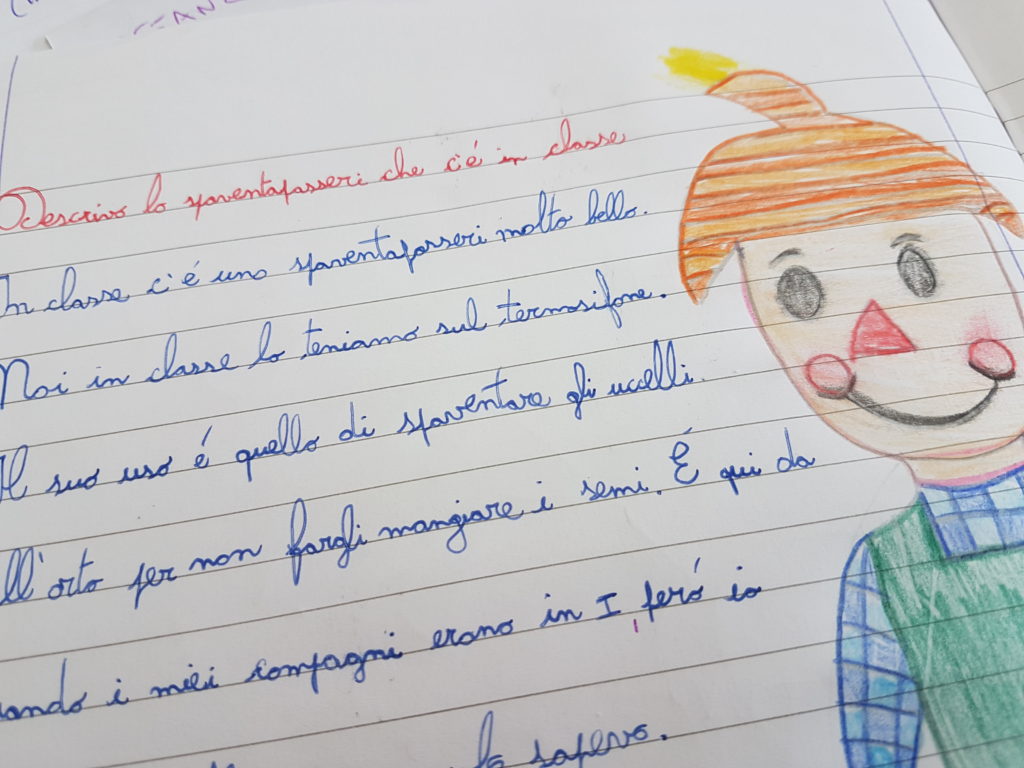 Descrivo lo spaventapasseri che c'é in classe
In classe c'é uno spaventapasseri molto bello.
Noi in classe lo teniamo sul termosifone.
Il suo uso é quello di spaventare gli uccelli.
ll'orto per non fargli mangiare i semi. É qui da
ando i miei compagni erano in I, peró io
lo sapevo.